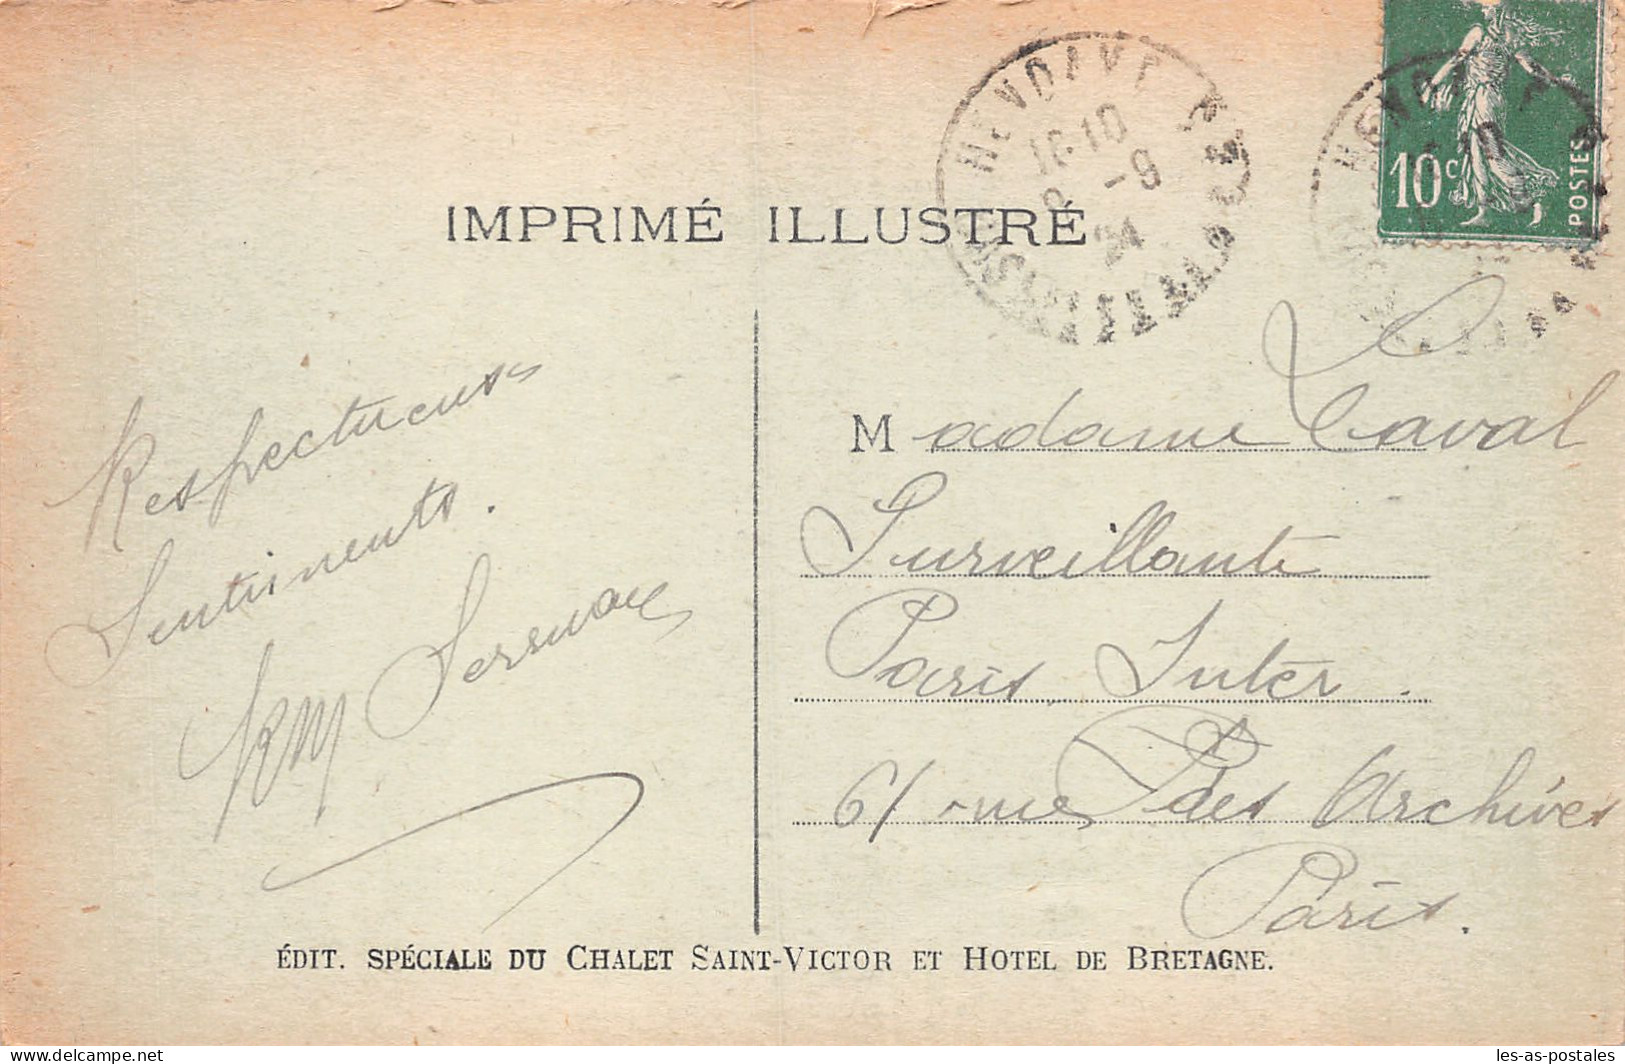 IMPRIMÉ ILLUSTRÉ
HENDAYE
16 10
8 -9
24
10c
POSTES
Respectueux
Sentiments.
Madame Laval
Surveillante
Paris Inter.
61 rue des Archives
Paris.
ÉDIT. SPÉCIALE DU CHALET SAINT-VICTOR ET HOTEL DE BRETAGNE.
les-as-postales